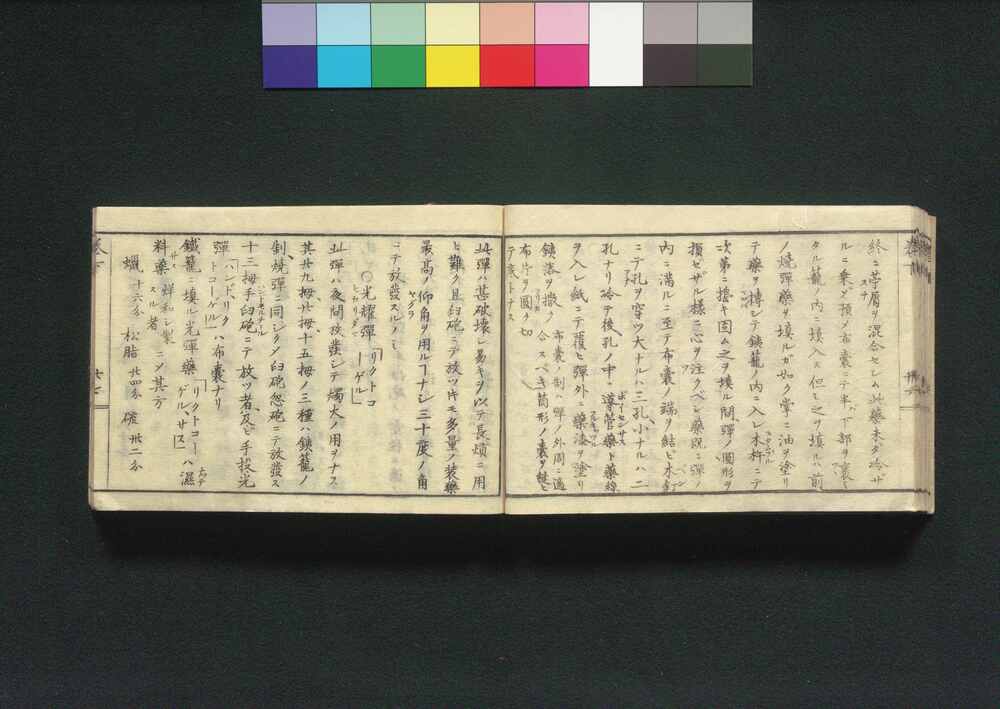 終ニ苧屑ヲ混合セシム此藥未タ冷ザ
ルニ乗ジ預メ布嚢ニテ半下部ヲ裹ミ
タル籠ノ内ニ填入ス但シ之ヲ填ルハ前
ノ燒彈藥ヲ填ルガ如ク掌ニ油ヲ塗リ
テ藥ヲ摶シテ鐵籠ノ内ニ入レ木杵ニテ
次第ニ搗キ固ム之ヲ填ル間彈ノ圓形ヲ
損セザル樣ニ心ヲ注クベシ藥既ニ彈ノ
内ニ滿ルニ至テ布嚢ノ端ヲ結ビ木
ニテ孔ヲ穿ツ大ナルハ三孔小ナルハ二
孔ナリ冷テ後孔ノ中ニ導管藥ト藥線
ヲ入レ紙ニテ覆ヒ彈外ニ藥漆ヲ塗リ
鐵落ヲ撒ク
布嚢ノ制ハ彈ノ外周ニ適
合スベキ筒形ノ嚢ヲ縫ヒ
布片ヲ圓ク切
テ底トナス
此彈ハ甚破壊シ易キヲ以テ長煩ニ用
ヒ難ク且臼砲ニテ放ツ時モ多量ノ装藥
最高ノ仰角ヲ用ルヿナシ三十度ノ角
ニテ放發スルノミ
○光耀彈「リクトコーゲル」
此彈ハ夜間放發シテ燭火ノ用ヲナス
其廿九拇廿拇十五拇ノ三種ハ鐵籠ノ
製燒彈ニ同シクメ臼砲忽砲ニテ放發ス
十三拇手臼砲ニテ放ツ者及ヒ手投光
彈「ハンドリクトコーゲル」ハ布嚢ナリ
鐵籠ニ填ル光彈藥「リクトコーゲルサス」ハ濕
料藥ト拌和シ製スル者ニメ其方
蠟十六分 松脂廿四分 硫卅二分